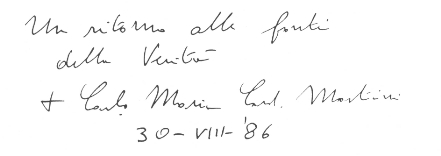 Un ritorno alle fonti
della Verità
+ Carlo Maria Card. Martini
30-VIII-'86